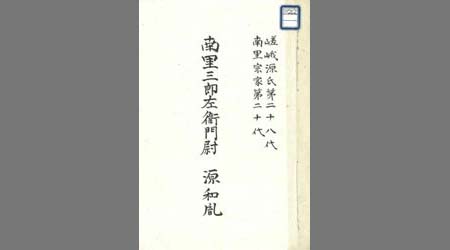 嵯峨源氏第二十八代
南里宗家第二十代
南里三郎左衛門尉 源和胤